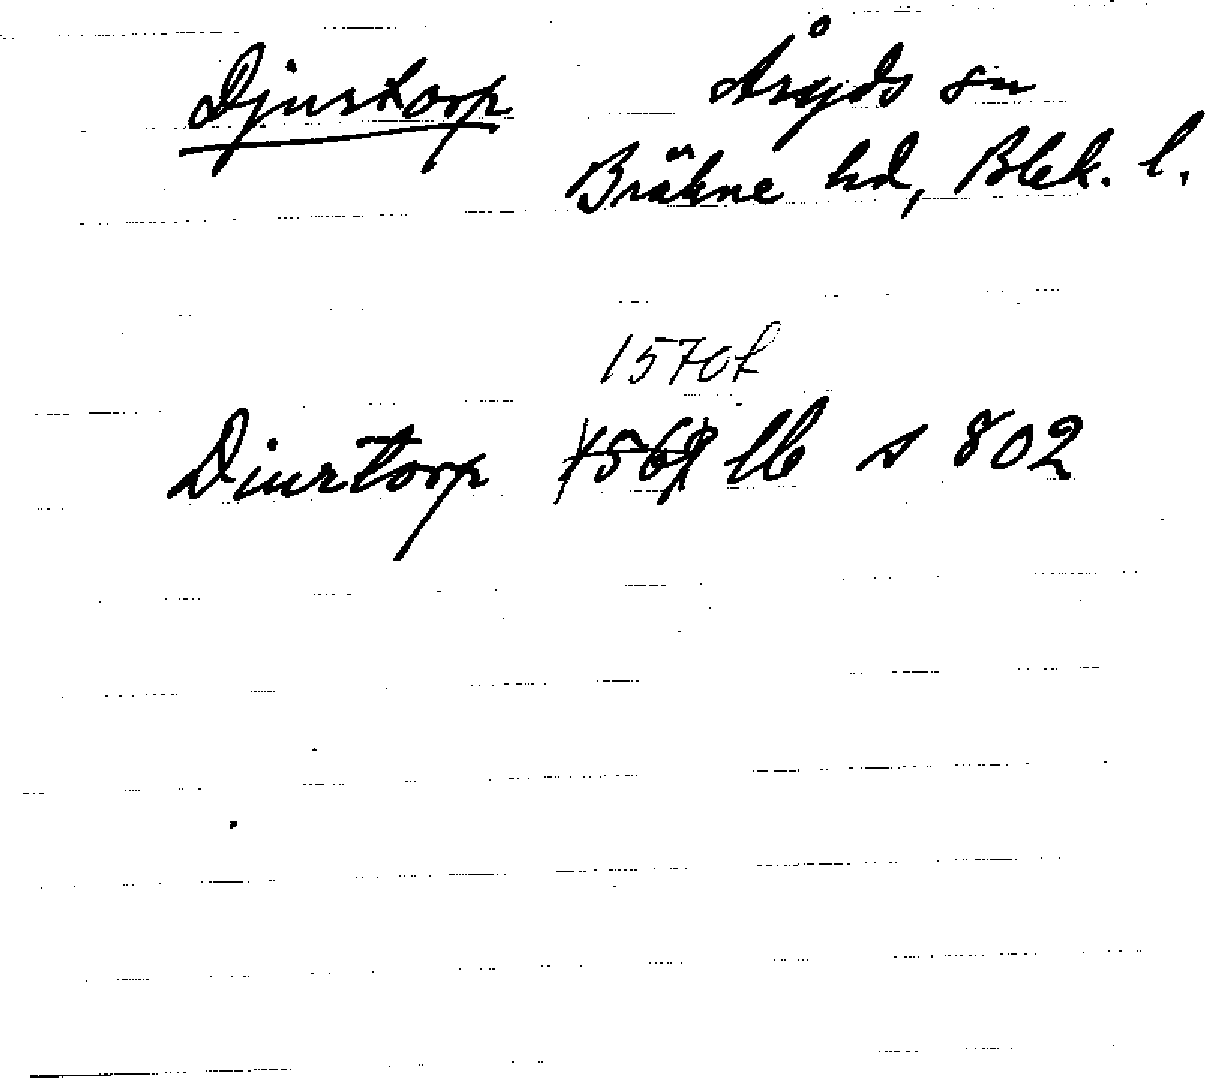 Djurtorp Åryds sn
Bräkne hd, Blek. l.
1570f
Diurtorp 1569 lb s 802